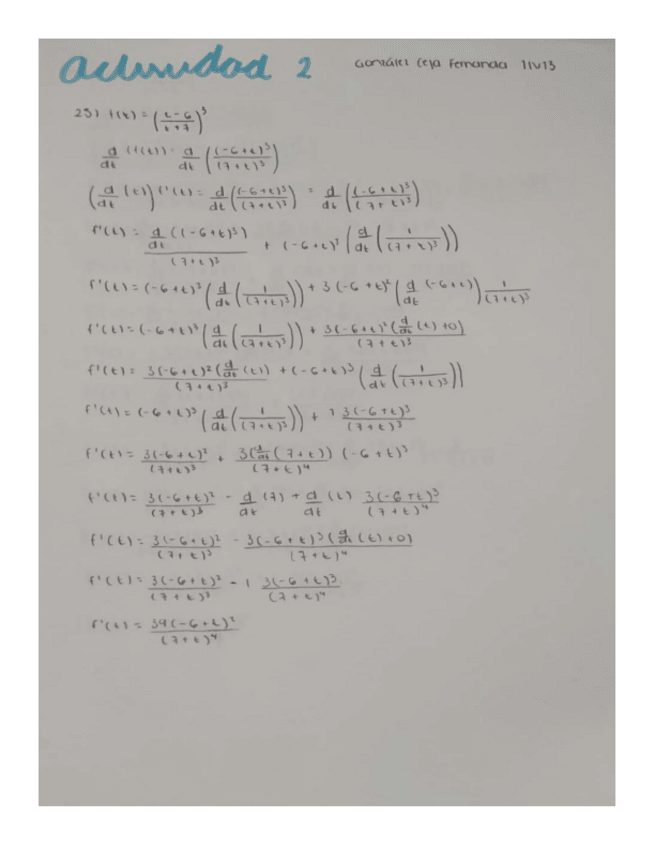 Actividad 2
González Ceja Fernanda 11V13
25) f(t) = ((t-6)/(t+7))^3
d/dt (f(t)) = d/dt ((-6+t)^3/(7+t)^3)
(d/dt (t)) f'(t) = d/dt ((-6+t)^3/(7+t)^3) = d/dt ((-6+t)^3/(7+t)^3)
f'(t) = d/dt ((-6+t)^3)/(7+t)^3 + (-6+t)^3 (d/dt (1/(7+t)^3))
f'(t) = (-6+t)^3 (d/dt (1/(7+t)^3)) + 3(-6+t)^2 (d/dt (-6+t)) 1/(7+t)^3
f'(t) = (-6+t)^3 (d/dt (1/(7+t)^3)) + 3(-6+t)^2 (d/dt (t) + 0)/(7+t)^3
f'(t) = 3(-6+t)^2 (d/dt (t))/(7+t)^3 + (-6+t)^3 (d/dt (1/(7+t)^3))
f'(t) = (-6+t)^3 (d/dt (1/(7+t)^3)) + 1 3(-6+t)^3/(7+t)^3
f'(t) = 3(-6+t)^2/(7+t)^3 + 3(d/dt (7+t)) (-6+t)^3/(7+t)^4
f'(t) = 3(-6+t)^2/(7+t)^3 - d/dt (7) + d/dt (t) 3(-6+t)^3/(7+t)^4
f'(t) = 3(-6+t)^2/(7+t)^3 - 3(-6+t)^3 (d/dt (t) + 0)/(7+t)^4
f'(t) = 3(-6+t)^2/(7+t)^3 - 1 3(-6+t)^3/(7+t)^4
f'(t) = 39(-6+t)^2/(7+t)^4